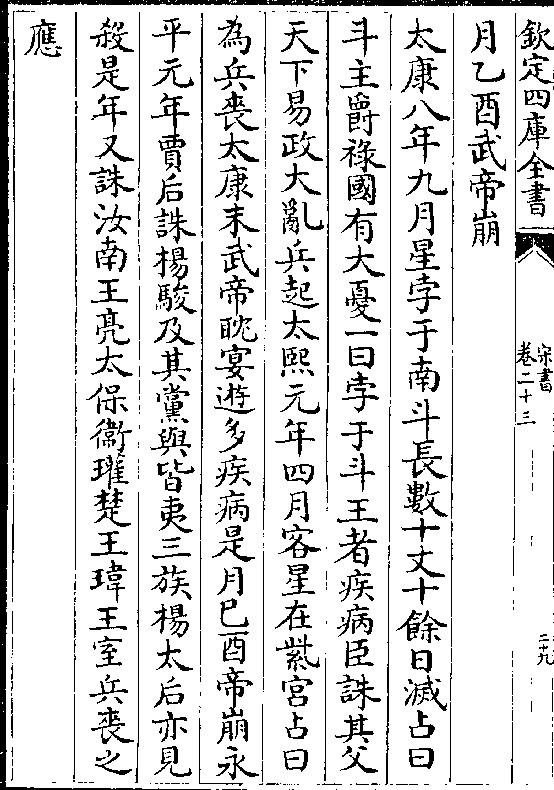 欽定四庫全書
宋書
卷二十三
二十九
月乙酉武帝崩
太康八年九月星孛于南斗長數十丈十餘日滅占曰
斗主爵祿國有大憂一曰孛于斗王者疾病臣誅其父
天下易政大亂兵起太熙元年四月客星在紫宮占曰
為兵喪太康末武帝耽宴遊多疾病是月己酉帝崩永
平元年賈后誅楊駿及其黨與皆夷三族楊太后亦見
殺是年又誅汝南王亮太保衞瓘楚王瑋王室兵喪之
應